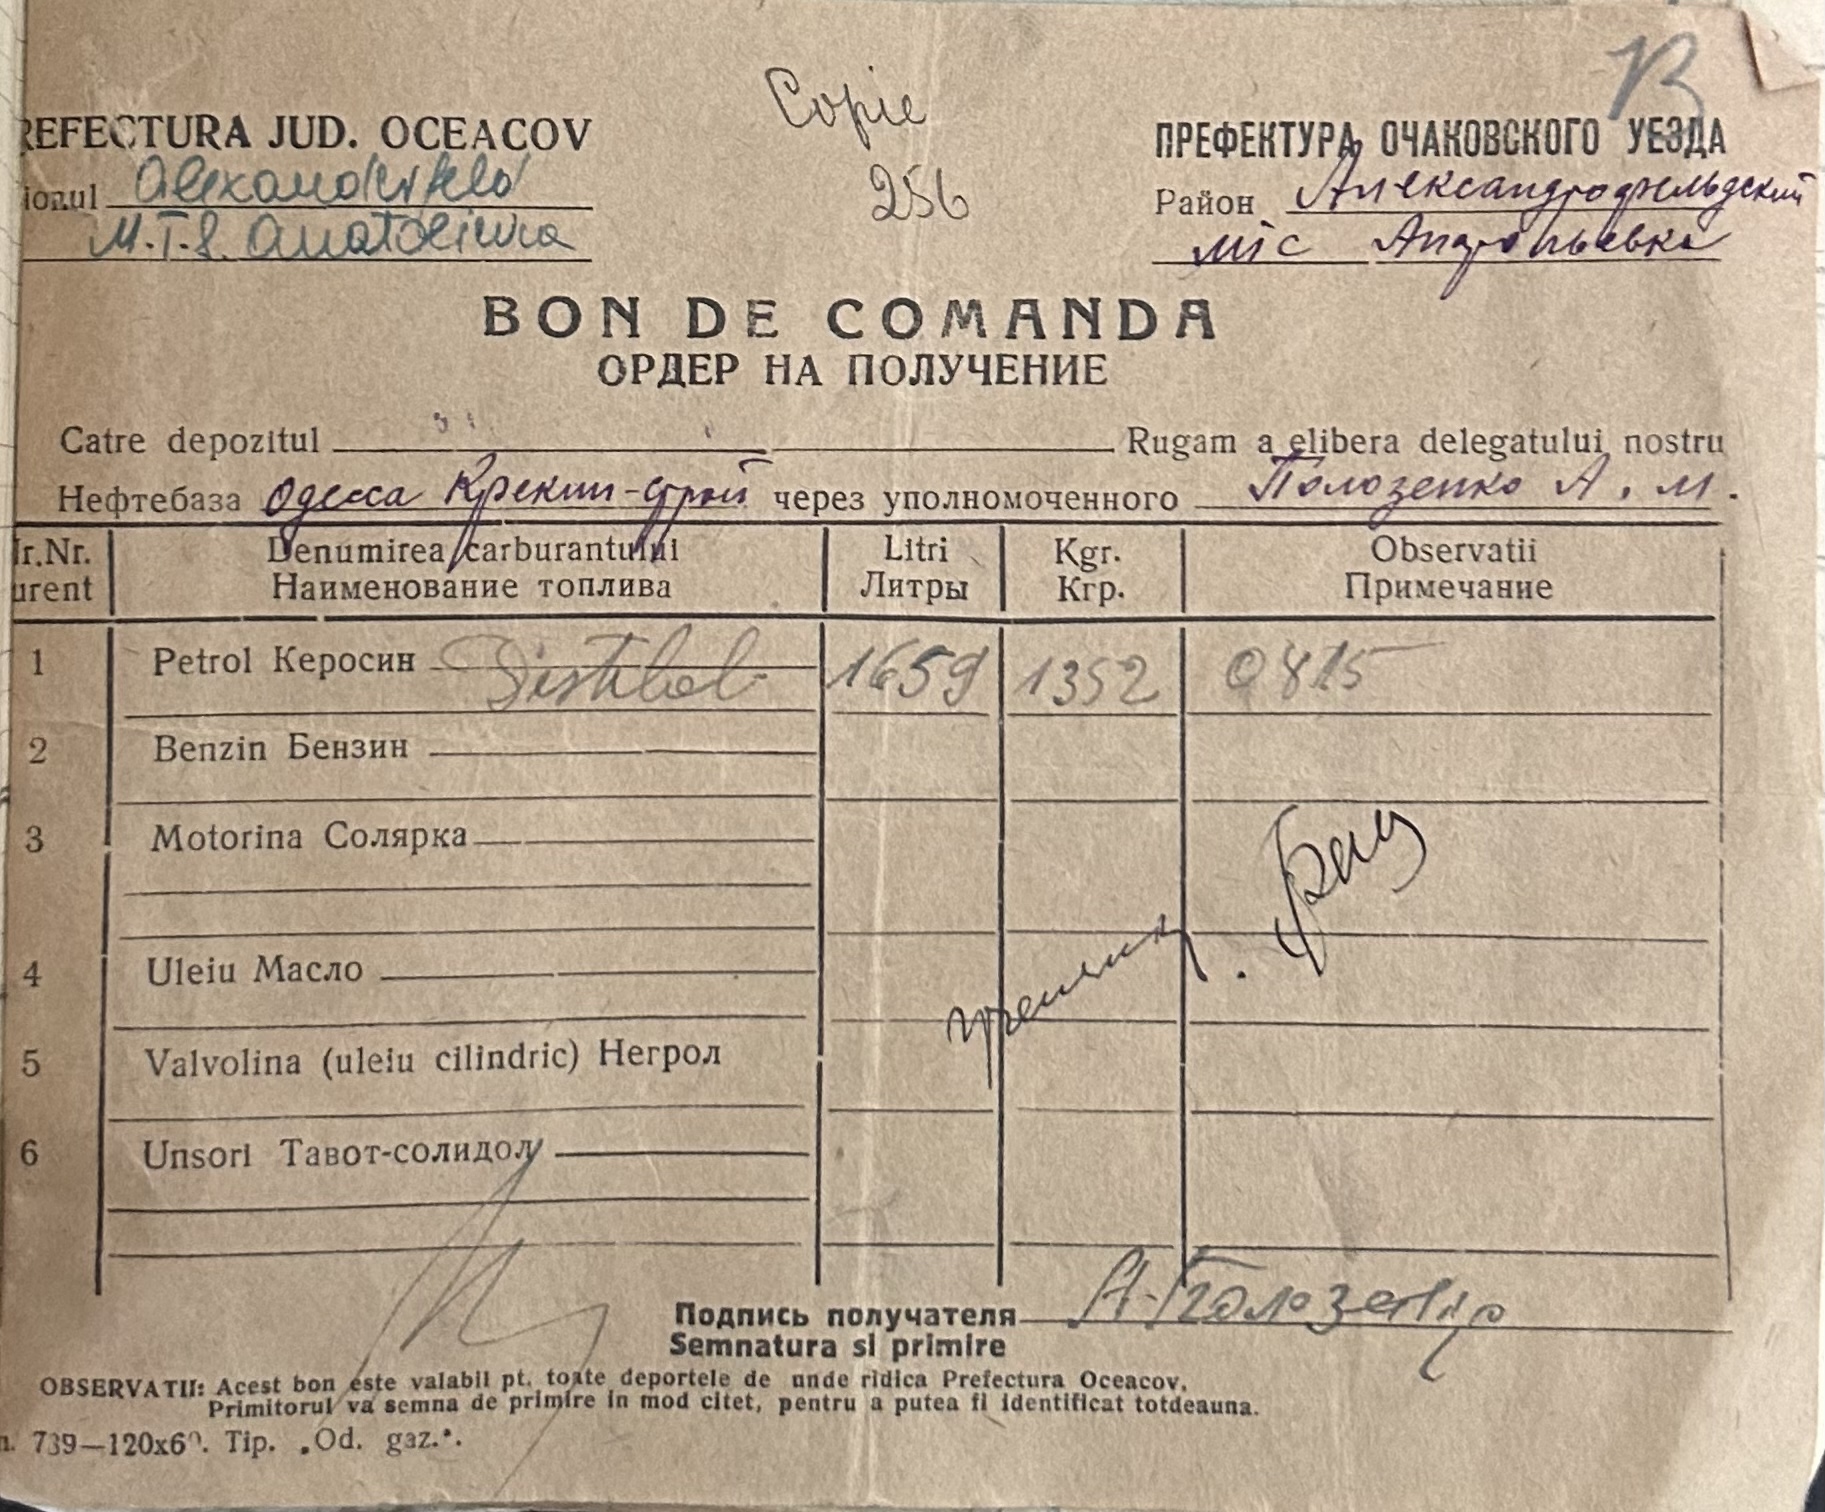 Copie
256
REFECTURA JUD. OCEACOV
ionul Alexanderfeld
M.T.S.
ПРЕФЕКТУРА ОЧАКОВСКОГО УЕЗДА
Район Александрофельдский
міс
BON DE COMANDA
ОРДЕР НА ПОЛУЧЕНИЕ
Catre depozitul Rugam a elibera delegatului nostru
Нефтебаза Одесса Крекин-строй через уполномоченного Полозенко А. М.
r.Nr. Denumirea carburantului Litri Kgr. Observatii
urent Наименование топлива Литры Кгр. Примечание
1 Petrol Керосин 1659 1352 0815
2 Benzin Бензин
3 Motorina Солярка
4 Uleiu Масло
5 Valvolina (uleiu cilindric) Негрол
6 Unsori Тавот-солидол
Подпись получателя А. Полозенко
Semnatura si primire
OBSERVATII: Acest bon este valabil pt. toate deportele de unde ridica Prefectura Oceacov.
Primitorul va semna de primire in mod citet, pentru a putea fi identificat totdeauna.
739—120x60. Tip. „Od. gaz.".